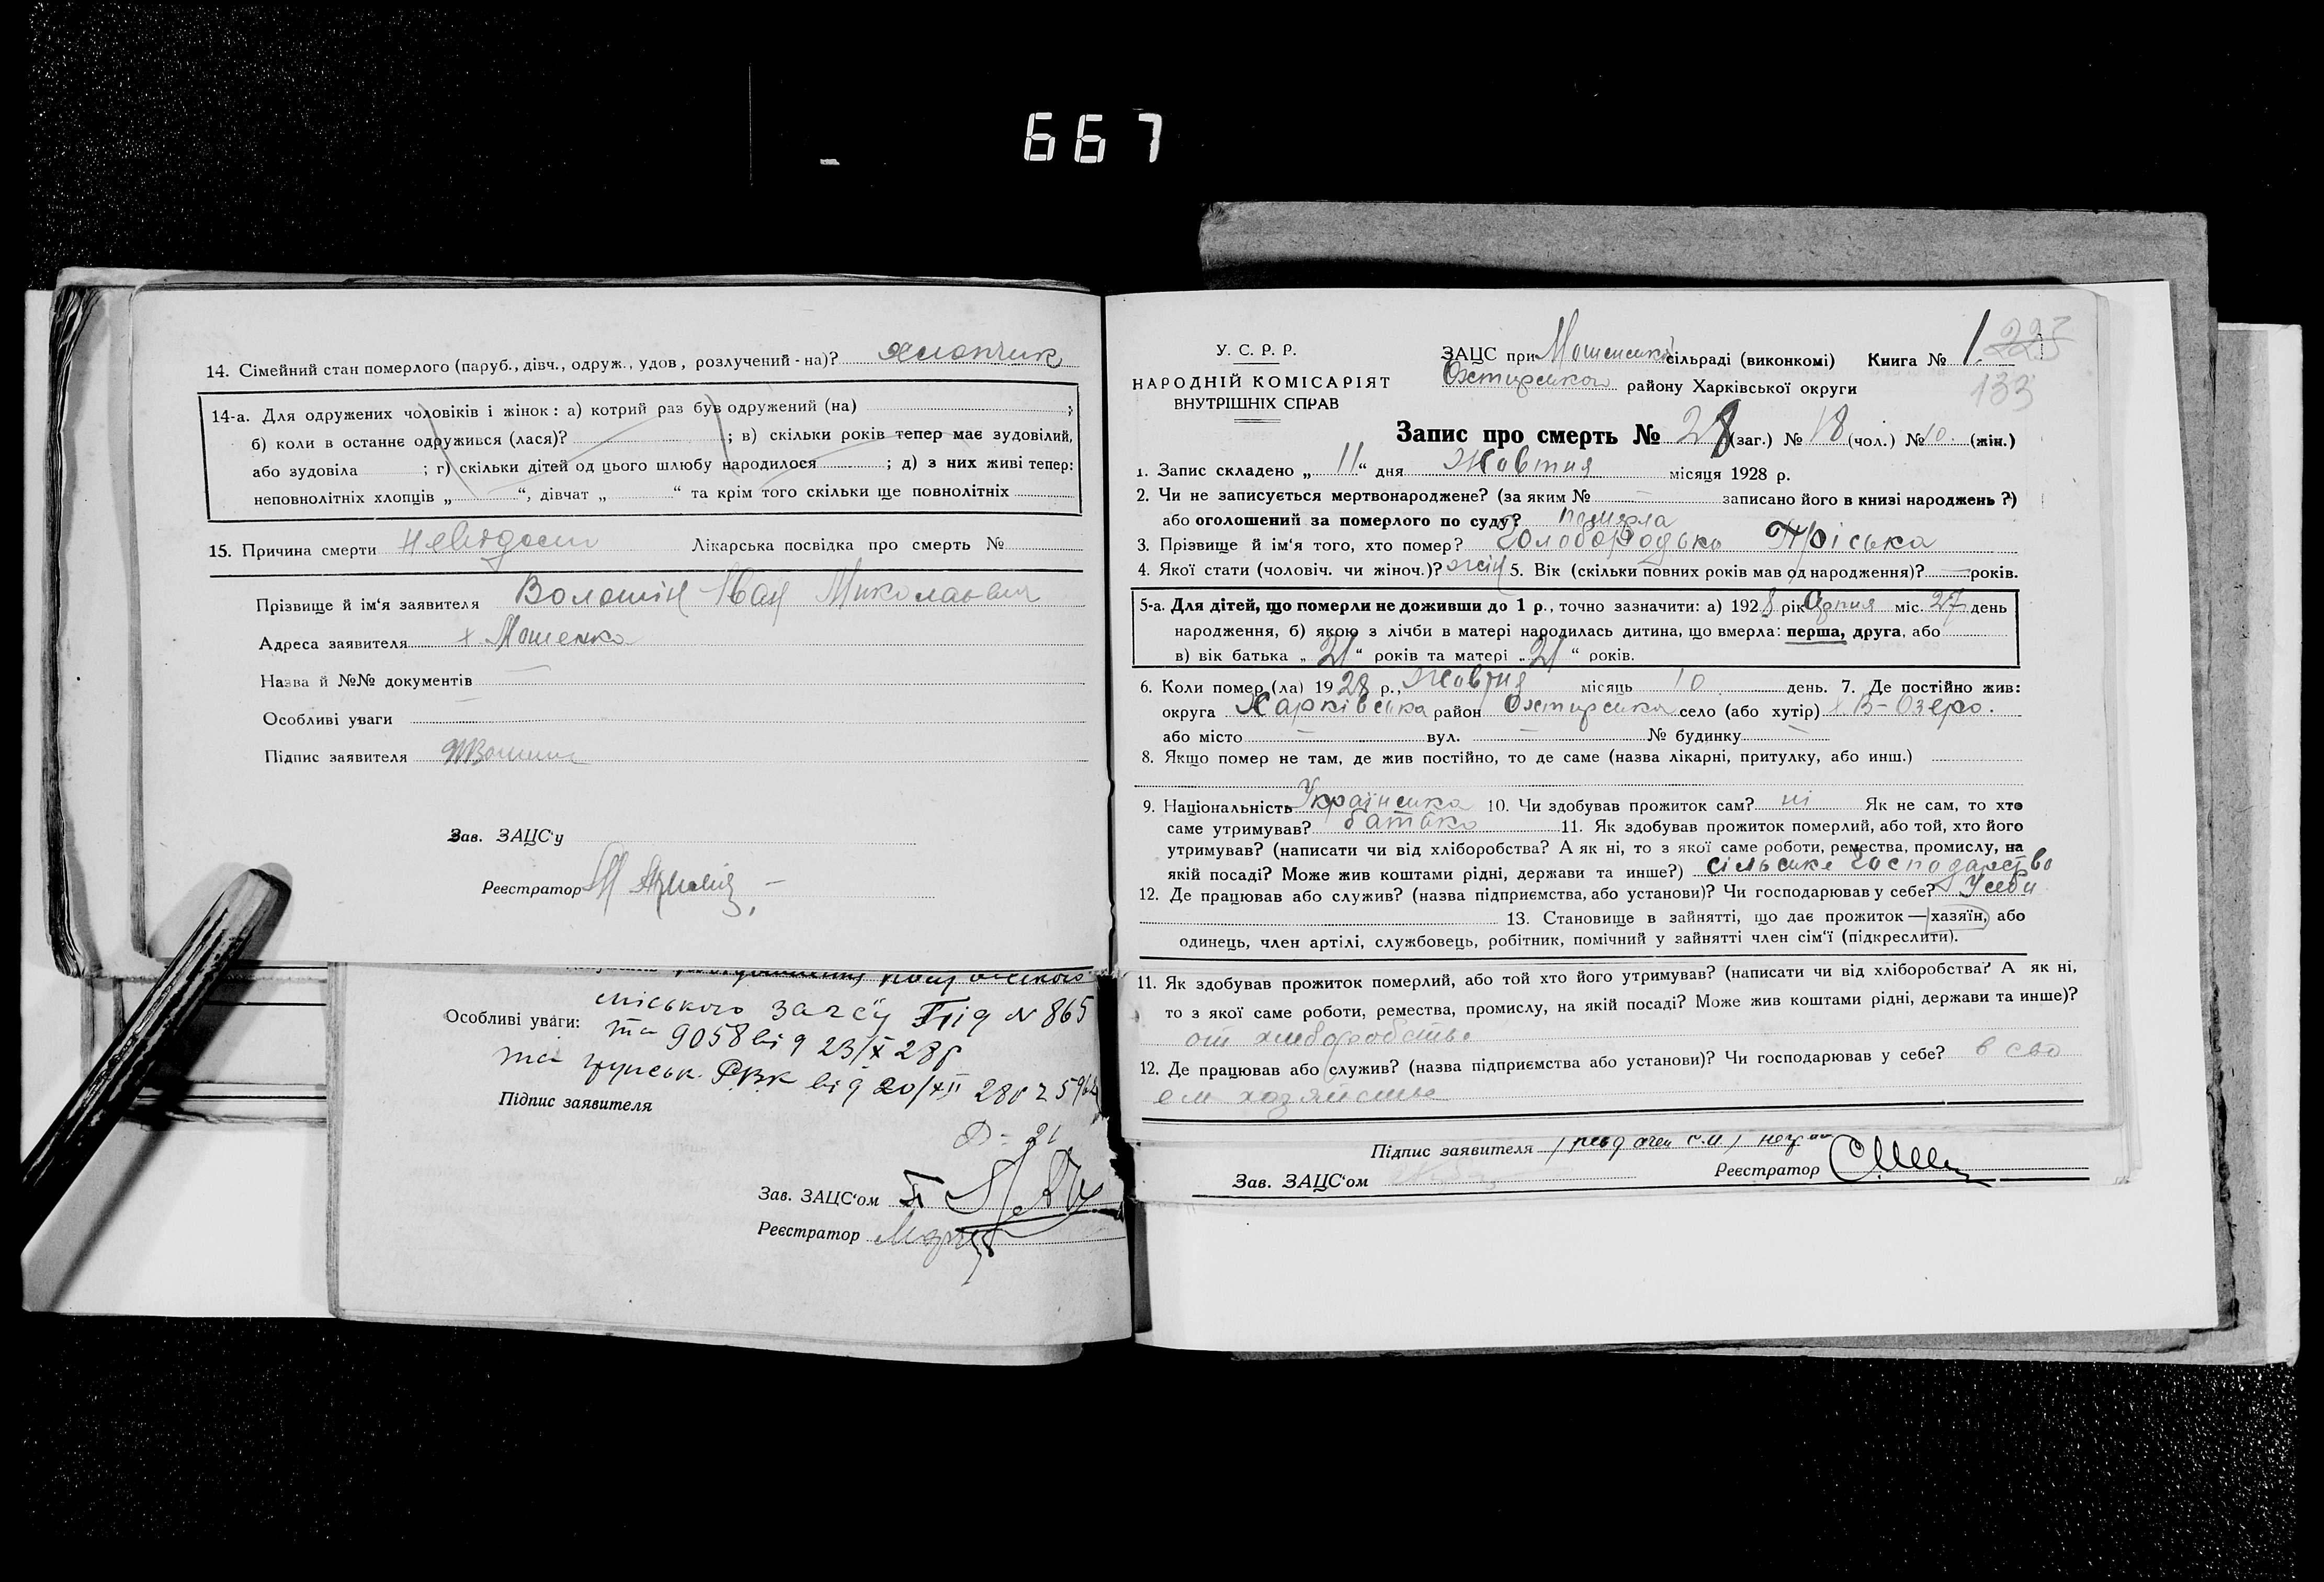 667
14. Сімейний стан померлого (паруб., дівч., одруж., удов, розлучений-на)? хлопчик
14-а. Для одружених чоловіків і жінок: а) котрий раз був одружений (на) ;
б) коли в останнє одружився (лася)? ; в) скільки років тепер має зудовілий,
або зудовіла ; г) скільки дітей од цього шлюбу народилося ; д) з них живі тепер:
неповнолітніх хлопців „ “, дівчат „ “ та крім того скільки ще повнолітніх
15. Причина смерти Лікарська посвідка про смерть №
Прізвище й ім'я заявителя Волошін Іван Миколаєвич
Адреса заявителя х. Мошенка
Назва й №№ документів —
Особливі уваги
Підпис заявителя
Зав. ЗАЦС'у
Реєстратор
міського загсу Під № 865
Особливі уваги: та 9058 від 23/X 28р
та РВК від 20/XII 28р
Підпис заявителя
Зав. ЗАЦС'ом
Реєстратор
У. С. Р. Р.
НАРОДНІЙ КОМІСАРІЯТ
ВНУТРІШНІХ СПРАВ
ЗАЦС при Мошенській сільраді (виконкомі) Книга № 1. 225
Охтирського району Харківської округи 133
Запис про смерть № 28 (заг.) № 18 (чол.) № 10. (жін.)
1. Запис складено „ 11 “ дня Жовтня місяця 1928 р.
2. Чи не записується мертвонароджене? (за яким № — записано його в книзі народжень?)
або оголошений за померлого по суду? померла
3. Прізвище й ім'я того, хто помер? Голобородько Пріська
4. Якої стати (чоловіч. чи жіноч.)? жін 5. Вік (скільки повних років мав од народження)? — років.
5-а. Для дітей, що померли не доживши до 1 р., точно зазначити: а) 1928 рік міс. 27 день
народження, б) якою з лічби в матері народилась дитина, що вмерла: перша, друга, або
в) вік батька „ 21 “ років та матері „ 21 “ років.
6. Коли помер (ла) 1928 р., Жовтня місяць 10 день. 7. Де постійно жив:
округа Харківська район Охтирська село (або хутір) х. В-Озеро.
або місто — вул. — № будинку —
8. Якщо помер не там, де жив постійно, то де саме (назва лікарні, притулку, або инш.)
9. Національність Українська 10. Чи здобував прожиток сам? ні Як не сам, то хто
саме утримував? батько 11. Як здобував прожиток померлий, або той, хто його
утримував? (написати чи від хліборобства? А як ні, то з якої саме роботи, ремества, промислу, на
якій посаді? Може жив коштами рідні, держави та инше?) сільське господарство
12. Де працював або служив? (назва підприємства, або установи)? Чи господарював у себе? У себе
13. Становище в зайнятті, що дає прожиток — хазяїн, або
одинець, член артілі, службовець, робітник, помічний у зайнятті член сім'ї (підкреслити).
11. Як здобував прожиток померлий, або той хто його утримував? (написати чи від хліборобства? А як ні,
то з якої саме роботи, ремества, промислу, на якій посаді? Може жив коштами рідні, держави та инше)?
от хлеборобства
12. Де працював або служив? (назва підприємства або установи)? Чи господарював у себе? в сво
ем хозяйстве
Підпис заявителя
Зав. ЗАЦС'ом Реєстратор